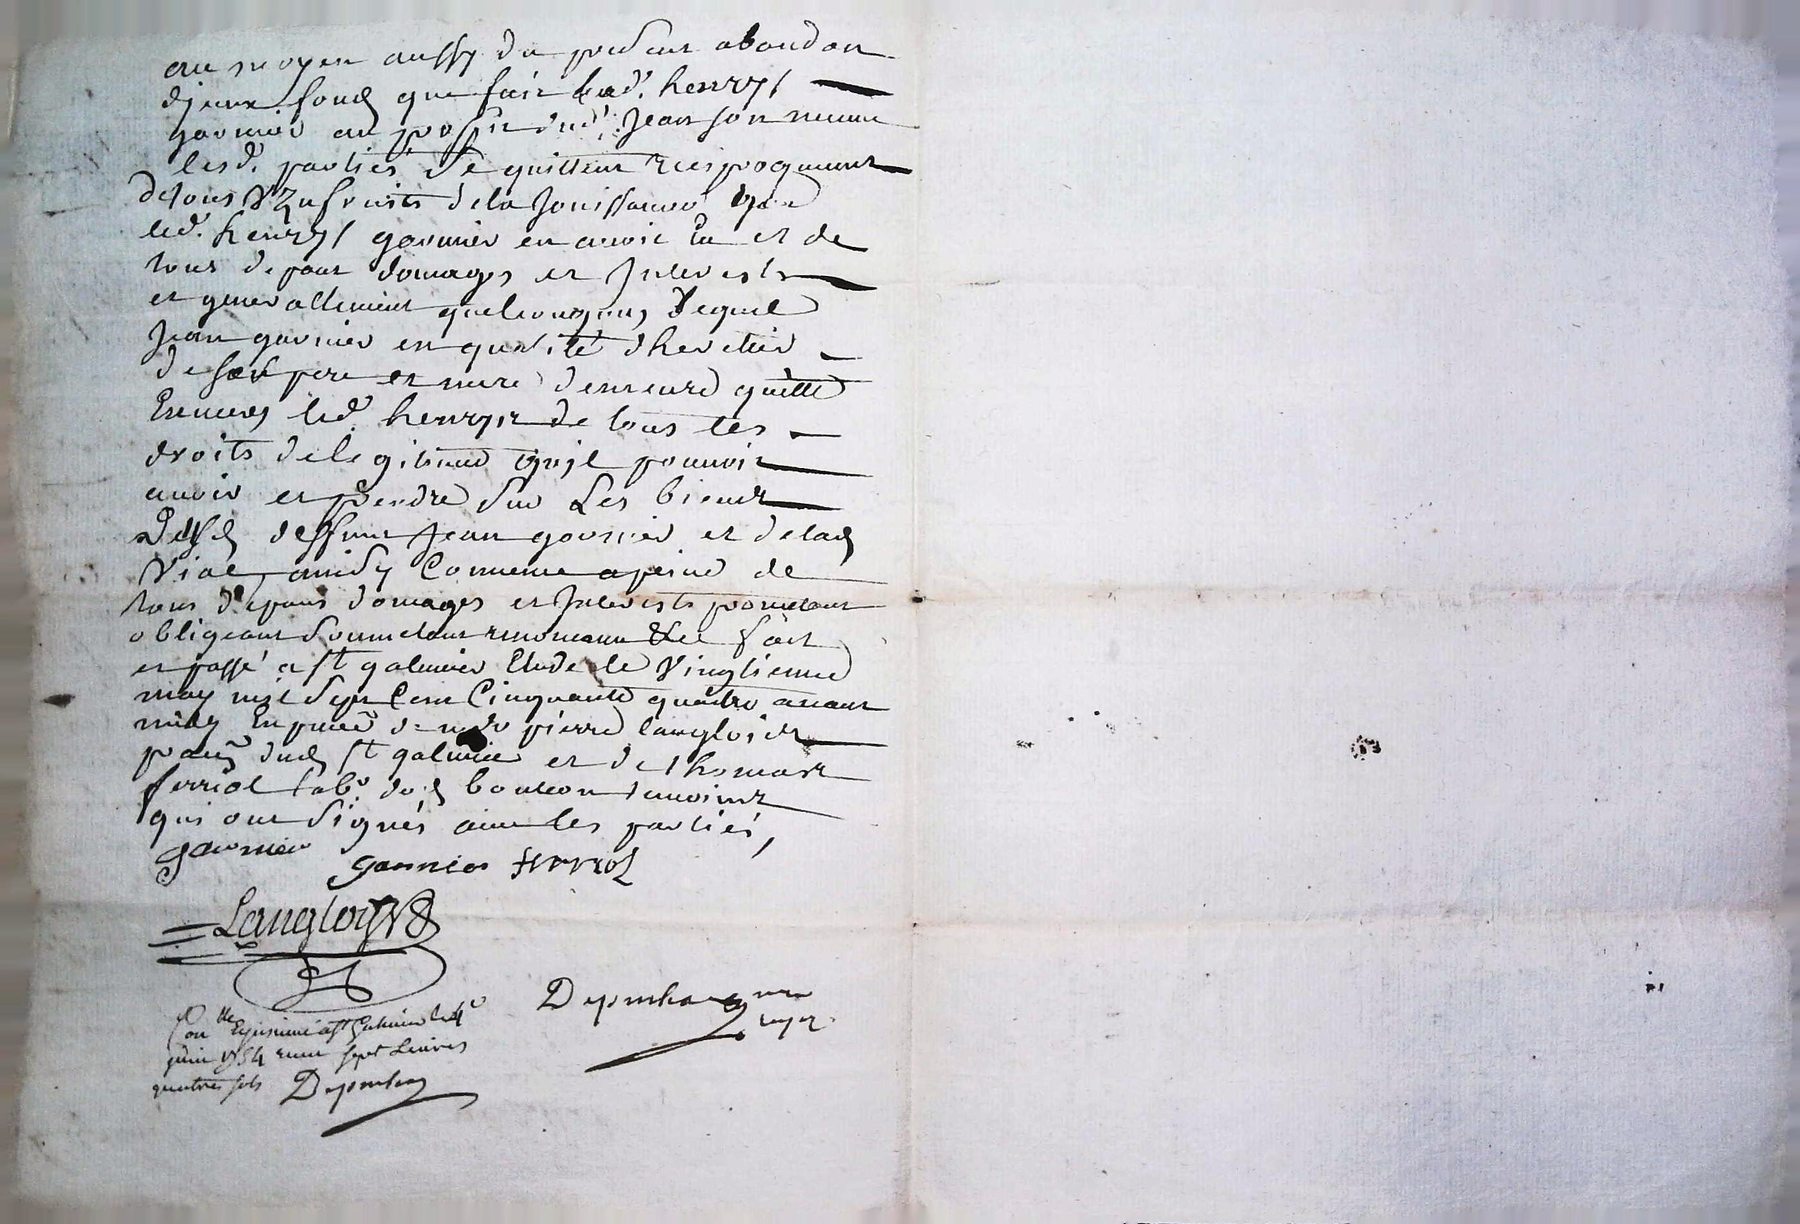 au moyen aussy du present abandon
diceux fond que fait led. henry
garnier au profit dud. Jean son neveu
lesd. parties se quittent reciproquement
de tous Uzufruits de la Jouissance que
led. henry garnier en avoit eu et de
tous depans domages et Interests
et generallement quelconques lequel
Jean garnier en qualité dheretier
de ses pere et mere demeure quitte
Envers led. henry de tous les
droits de legitime qu'il pouvoit
avoir et prendre sur Les biens
desd deffunt Jean garnier et de lad
Vial ainsy Convenu a peine de
tous depans domages et Interests promettant
obligeant soumettant renoncant &c fait
et passé a st galmier Etude le Vingtieme
may mil sept Cent Cinquante quatre avant
midy En presence de pierre langlois
dud st galmier et de thomas
ferriol lab. dud boutheon temoins
qui ont signés avec les parties,
garnier
garnier ferriol
Langloys
Con.lle Enseigné a st Galmier le 4e
juin 1754 recu sept Livres
quatres sols